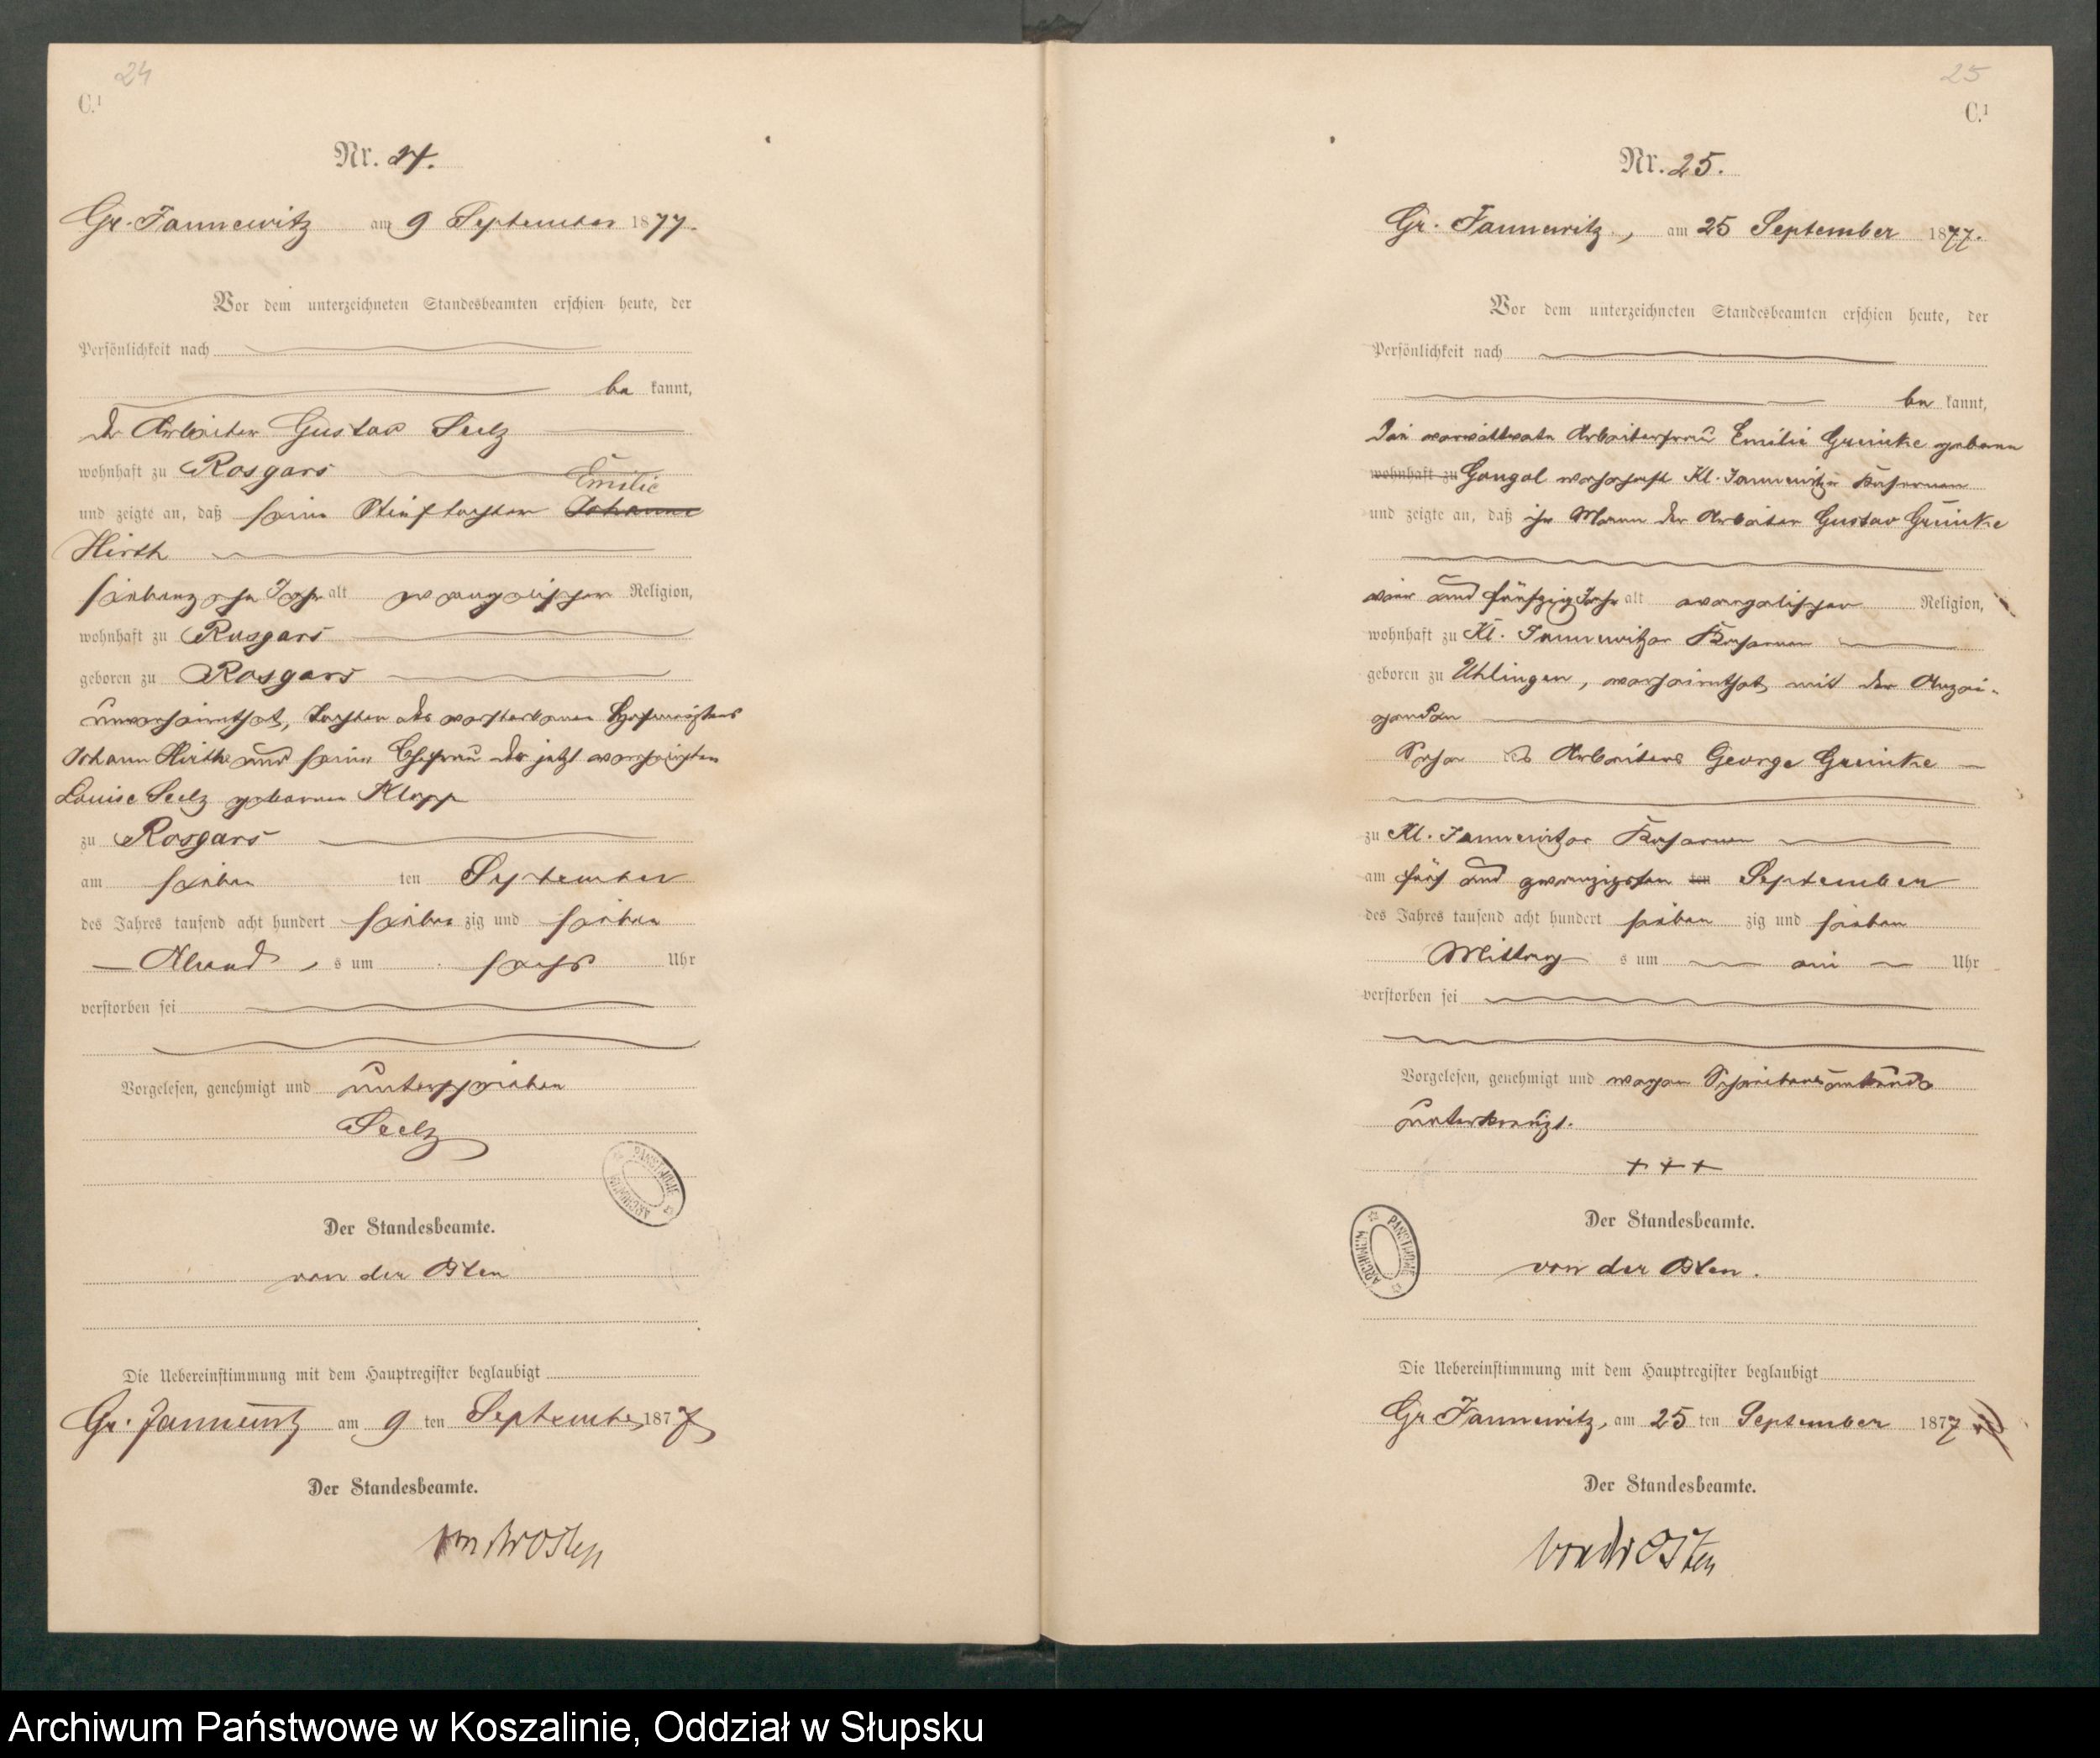 24
C.1
Nr. 24.
Gr. Jannewitz am 9 September 1877.
Vor dem unterzeichneten Standesbeamten erschien heute, der
Persönlichkeit nach
be kannt,
der Arbeiter Gustav Seelz
wohnhaft zu Rosgars
Emilie
und zeigte an, daß seine Stieftochter Johanne
Hirth
siebenzehn Jahr alt evangelischer Religion,
wohnhaft zu Rosgars
geboren zu Rosgars
unverheirathet, Tochter des verstorbenen Hofmeisters
Johann Hirth und seiner Ehefrau der jetzt verehelichten
Louise Seelz geborenen Klopp
zu Rosgars
am sieben ten September
des Jahres tausend acht hundert sieben zig und sieben
Abend s um sechs Uhr
verstorben sei
Vorgelesen, genehmigt und unterschrieben
Seelz
PAŃSTWOWE ARCHIWUM
Der Standesbeamte.
von der Osten
Die Uebereinstimmung mit dem Hauptregister beglaubigt
Gr. Jannewitz am 9 ten September 1877
Der Standesbeamte.
von der Osten
25
C.1
Nr. 25.
Gr. Jannewitz, am 25 September 1877.
Vor dem unterzeichneten Standesbeamten erschien heute, der
Persönlichkeit nach
be kannt,
Die verwittwete Arbeiterfrau Emilie Greinke geborne
wohnhaft zu Gengel wohnhaft Kl. Jannewitzer Kathen
und zeigte an, daß ihr Mann der Arbeiter Gustav Greinke
vier und fünfzig Jahr alt evangelischer Religion,
wohnhaft zu Kl. Jannewitzer
geboren zu Uhlingen, verheirathet mit der Anzei-
genden
Sohn des Arbeiters George Greinke
zu Kl. Jannewitzer
am fünf und zwanzigsten ten September
des Jahres tausend acht hundert sieben zig und sieben
Mittag s um ein Uhr
verstorben sei
Vorgelesen, genehmigt und wegen Schreibensunkunde
unterkreuzt.
+ + +
PAŃSTWOWE ARCHIWUM
Der Standesbeamte.
von der Osten.
Die Uebereinstimmung mit dem Hauptregister beglaubigt
Gr Jannewitz, am 25 ten September 1877
Der Standesbeamte.
von der Osten
Archiwum Państwowe w Koszalinie, Oddział w Słupsku